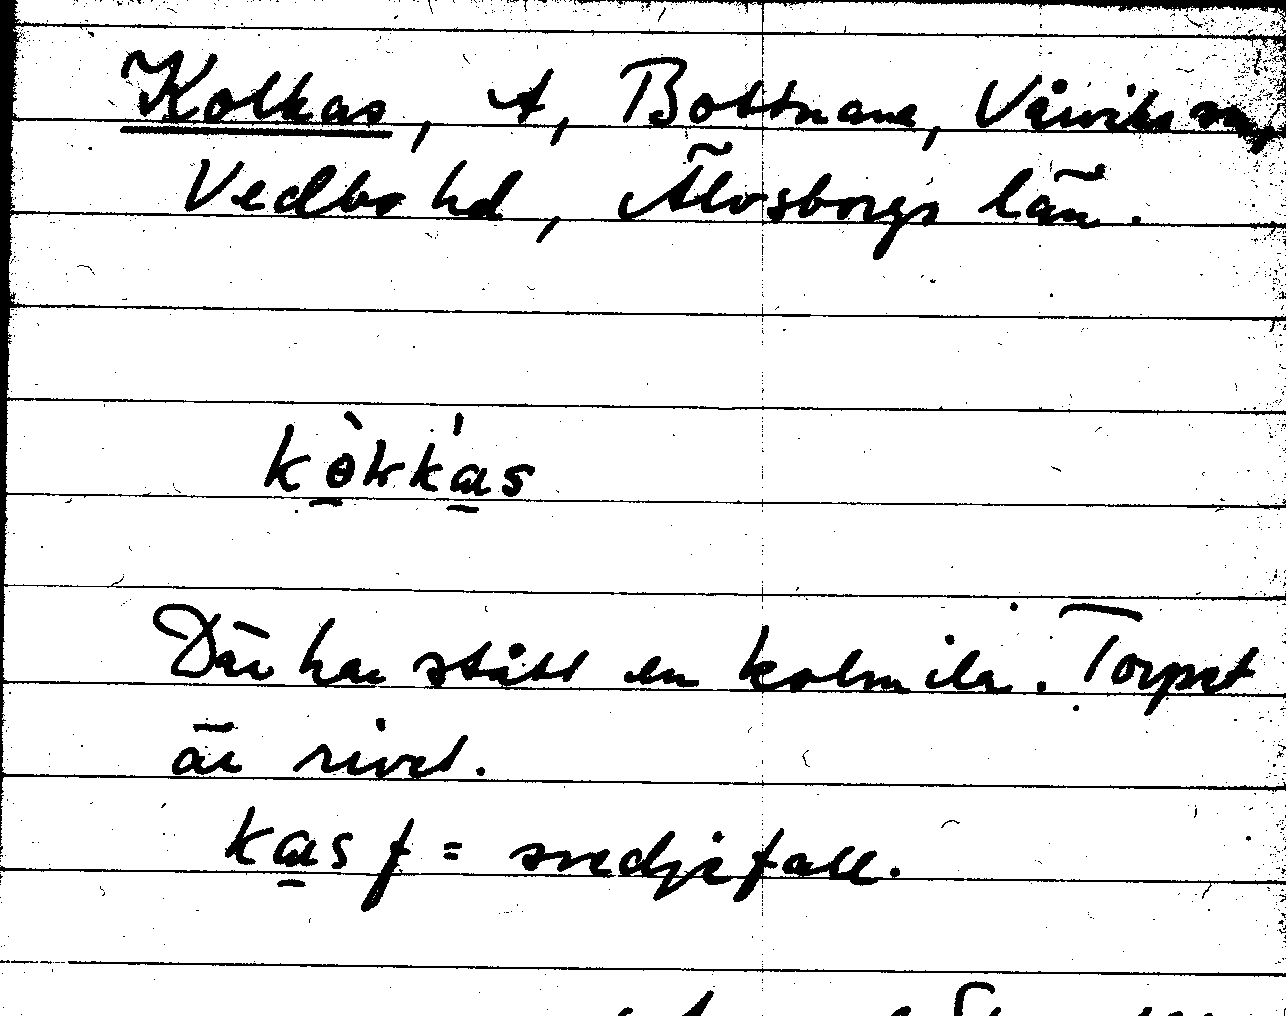 Kolkas, t, Bottnane, Vårviks sn,
Vedbo hd, Älvsborgs län.
kòkkas
Där har stått en kolmila. Torpet
är rivet.
kas f = svedjefall.